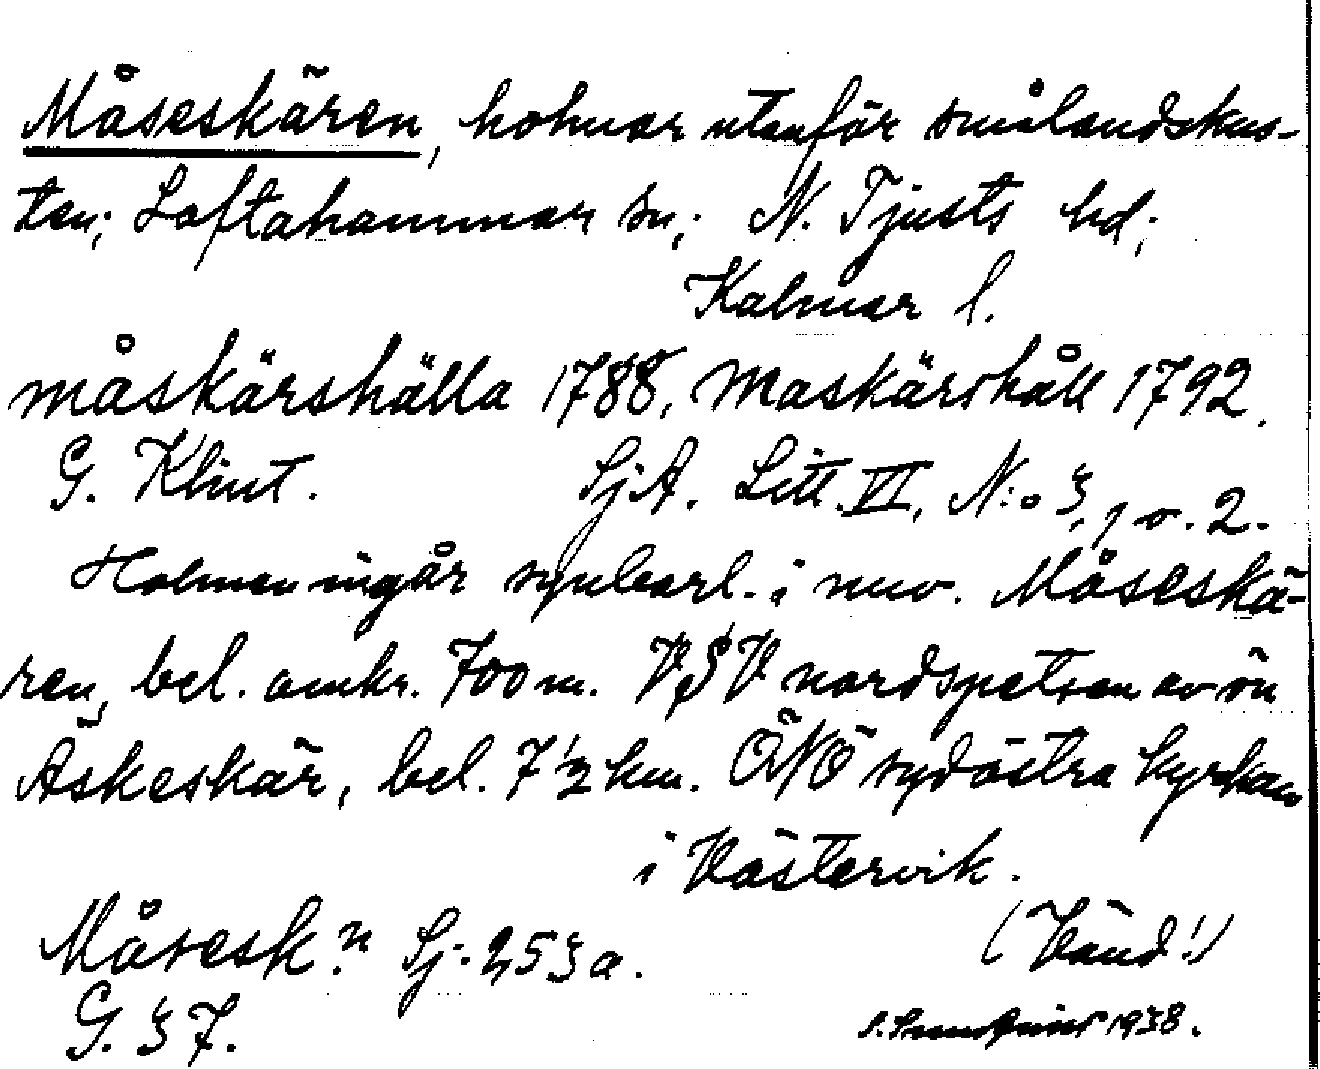 Måseskären, holmar utanför smålandskus-
ten; Loftahammar sn; N. Tjusts hd;
Kalmar l.
måskärshälla 1788, Maskärshåll 1792.
G. Klint. SjA. Litt. VI, N:o 3, 1 o. 2.
Holmen ingår synbarl. i nuv. Måseskä-
ren, bel. omkr. 700 m. VSV nordspetsen av ön
Äskeskär, bel. 7 1/2 km. ÖNÖ sydöstra kyrkan
i Västervik.
Måsesk:n Sj. 253 a. (Vänd!)
G. 37. 1938.